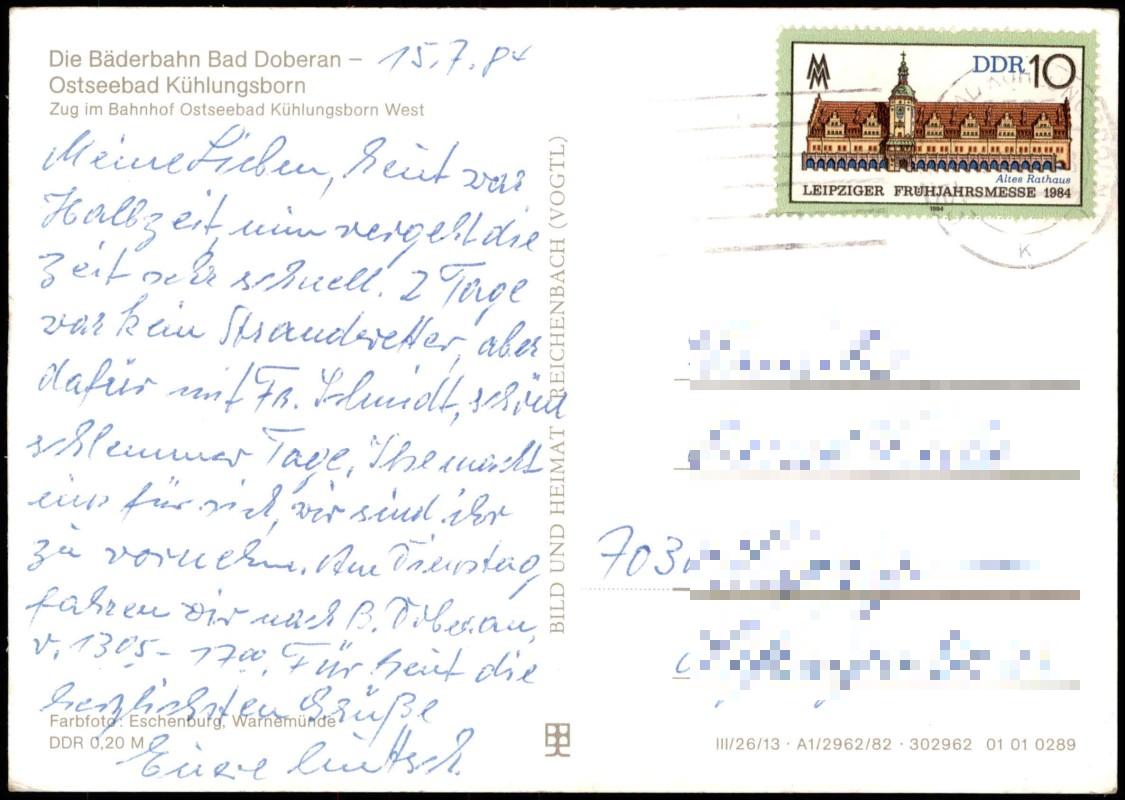 Die Bäderbahn Bad Doberan –
Ostseebad Kühlungsborn
Zug im Bahnhof Ostseebad Kühlungsborn West
15.7.84
Meine Lieben, heut war
Halbzeit, nun vergeht die
Zeit sehr schnell. 2 Tage
war kein Strandwetter, aber
dafür mit Fr. Schmidt, schöne
Tage.
uns für sich, wir sind ihr
zu vornehm. Am Dienstag
fahren wir nach B. Doberan,
v. 1305 - 1700. Für heut die
herzlichsten Grüße
Eure
Farbfoto: Eschenburg, Warnemünde
DDR 0,20 M
BILD UND HEIMAT REICHENBACH (VOGTL)
DDR 10
Altes Rathaus
LEIPZIGER FRÜHJAHRSMESSE 1984
1984
K
703
III/26/13 · A1/2962/82 · 302962 01 01 0289